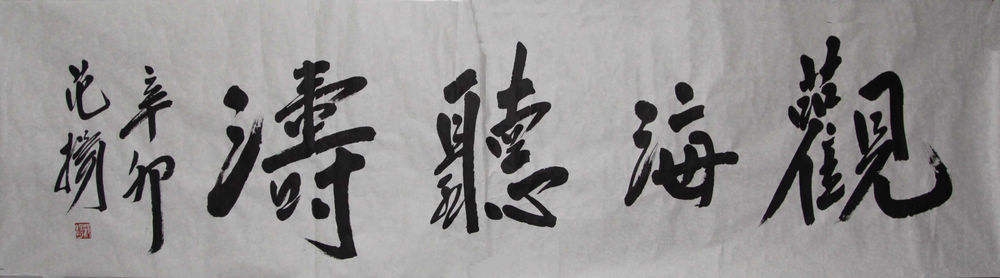 觀海聽濤
辛卯
范揚